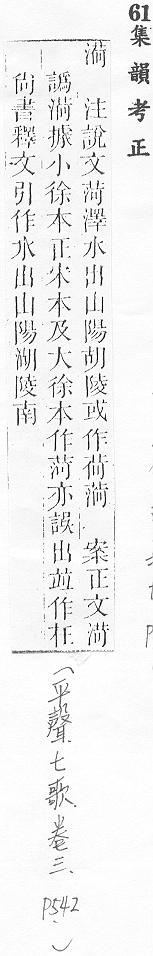 61集韻考正
滒 注說文菏澤水出山陽胡陵或作荷滒 案正文滒
譌滒據小徐本正宋本及大徐本作菏亦誤出竝作在
尙書釋文引作水出山陽湖陵南
(平聲.七歌.卷三、P542.)